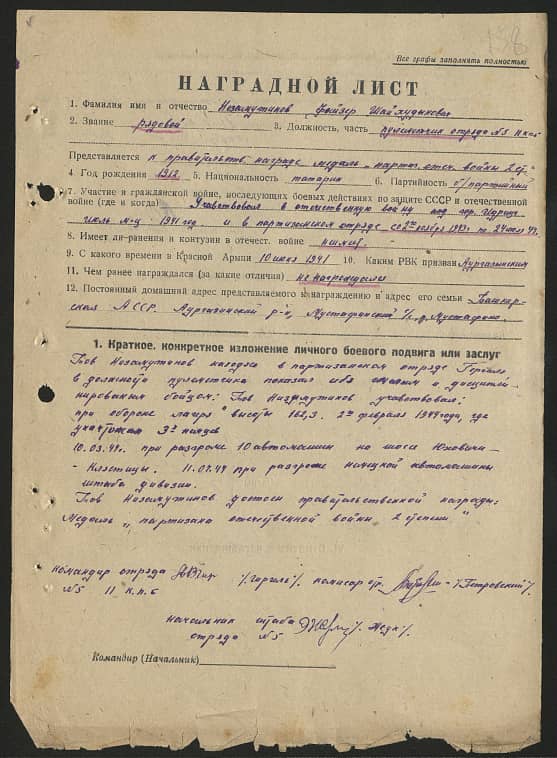 138
Все графы заполнять полностью
НАГРАДНОЙ ЛИСТ
1. Фамилия имя и отчество Незамутинов Фойзер
2. Звание рядовой 3. Должность, часть пулеметчик отряда №5
Представляется к правительств награде медаль "партиз. отеч. войны 2 ст."
4 Год рождения 1912 5. Национальность татарин 6. Партийность б/партийный
7. Участие в гражданской войне, последующих боевых действиях по защите СССР и отечественной
войне (где и когда) Участвовал в отечественной войну под гор.
июль м-ц 1941 год. и в партизанском отряде со 2го ноября 1943 г. по
8. Имеет ли ранения и контузии в отечест. войне
9. С какого времени в Красной Армии 10 июня 1941 10. Каким РВК призван Аургазинским
11. Чем ранее награждался (за какие отличия) не награждался
12. Постоянный домашний адрес представляемого к награждению и адрес его семьи Башкир-
ская АССР. Аургазинский р-н, Мустафинский с/с д. Мустафино.
1. Краткое, конкретное изложение личного боевого подвига или заслуг
Тов Незамутинов находясь в партизанском отряде Гоголя,
в должности пулеметчика показал себя смелым и дисципли-
нированным бойцом: Тов Незамутинов участвовал:
при обороне лагеря высоты 162,3. 2го февраля 1944 года, где
уничтожил 3х немцев
10.03.44г. при разгроме 10 автомашин на шосе Юховичи-
- Клястицы. 11.04.44 при разгроме немецкой автомашины
штаба дивизии.
Тов Незамутинов достоин правительственной награды:
Медаль „партизана отечественной войны 2 степени"
командир отряда /Гоголь/. комисар отр. /Петровский/
№5
начальник штаба
отряда №5
Командир (Начальник)